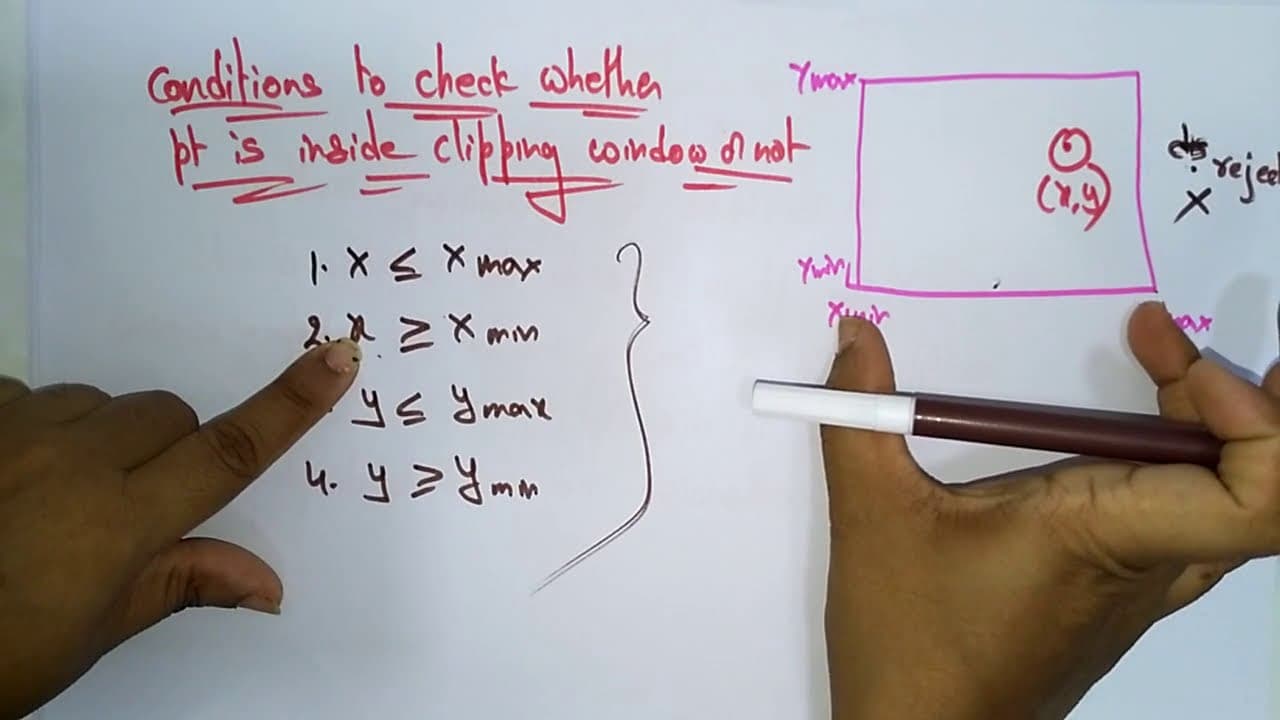 Conditions to check whether
pt is inside clipping window or not
1. x ≤ x max
2. x ≥ x min
y ≤ y max
4. y ≥ y min
Ymax
(x,y)
X
Ymin
Xmin